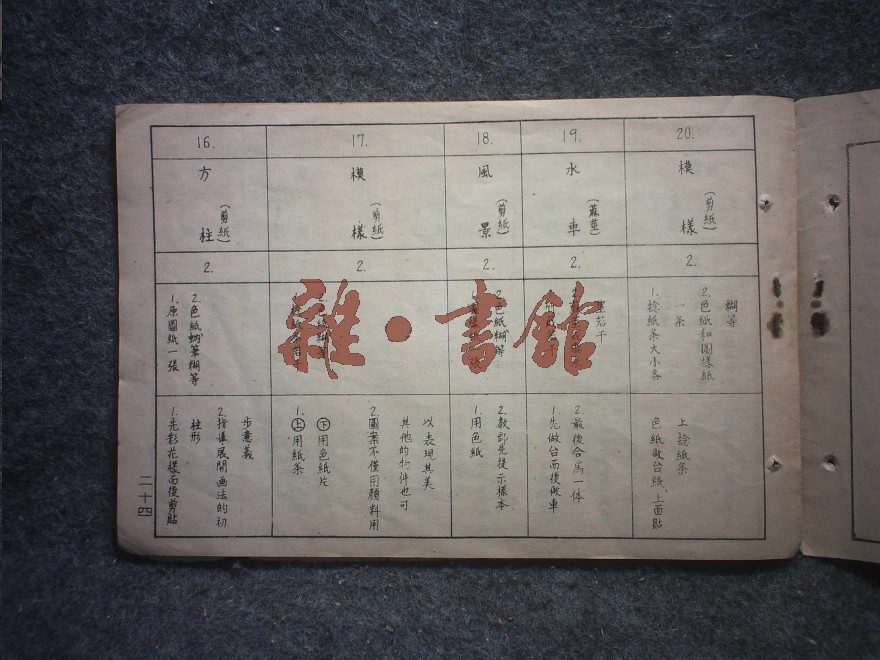 16.
方柱
(剪紙)
2.
1.原圖紙一張
2.色紙蚋筆糊等
1.先彩花樣而後剪貼
2.指導展開画法的初
步意義
柱形
17.
模樣
(剪紙)
2.
1.
上用紙条
下用色紙片
2.圖案不僅用顏料用
其他的物件也可
以表現其美
18.
風景
(剪紙)
2.
2.色紙糊等
1.用色紙
2.教師先提示樣本
19.
水車
2.
若干
1.先做台而後做車
2.最後合為一体
20.
模樣
(剪紙)
2.
1.捻紙条大小各
一条
2.色紙和圖樣紙
糊等
色紙做台紙,上面貼
上捻紙条
二十四
雜·書館